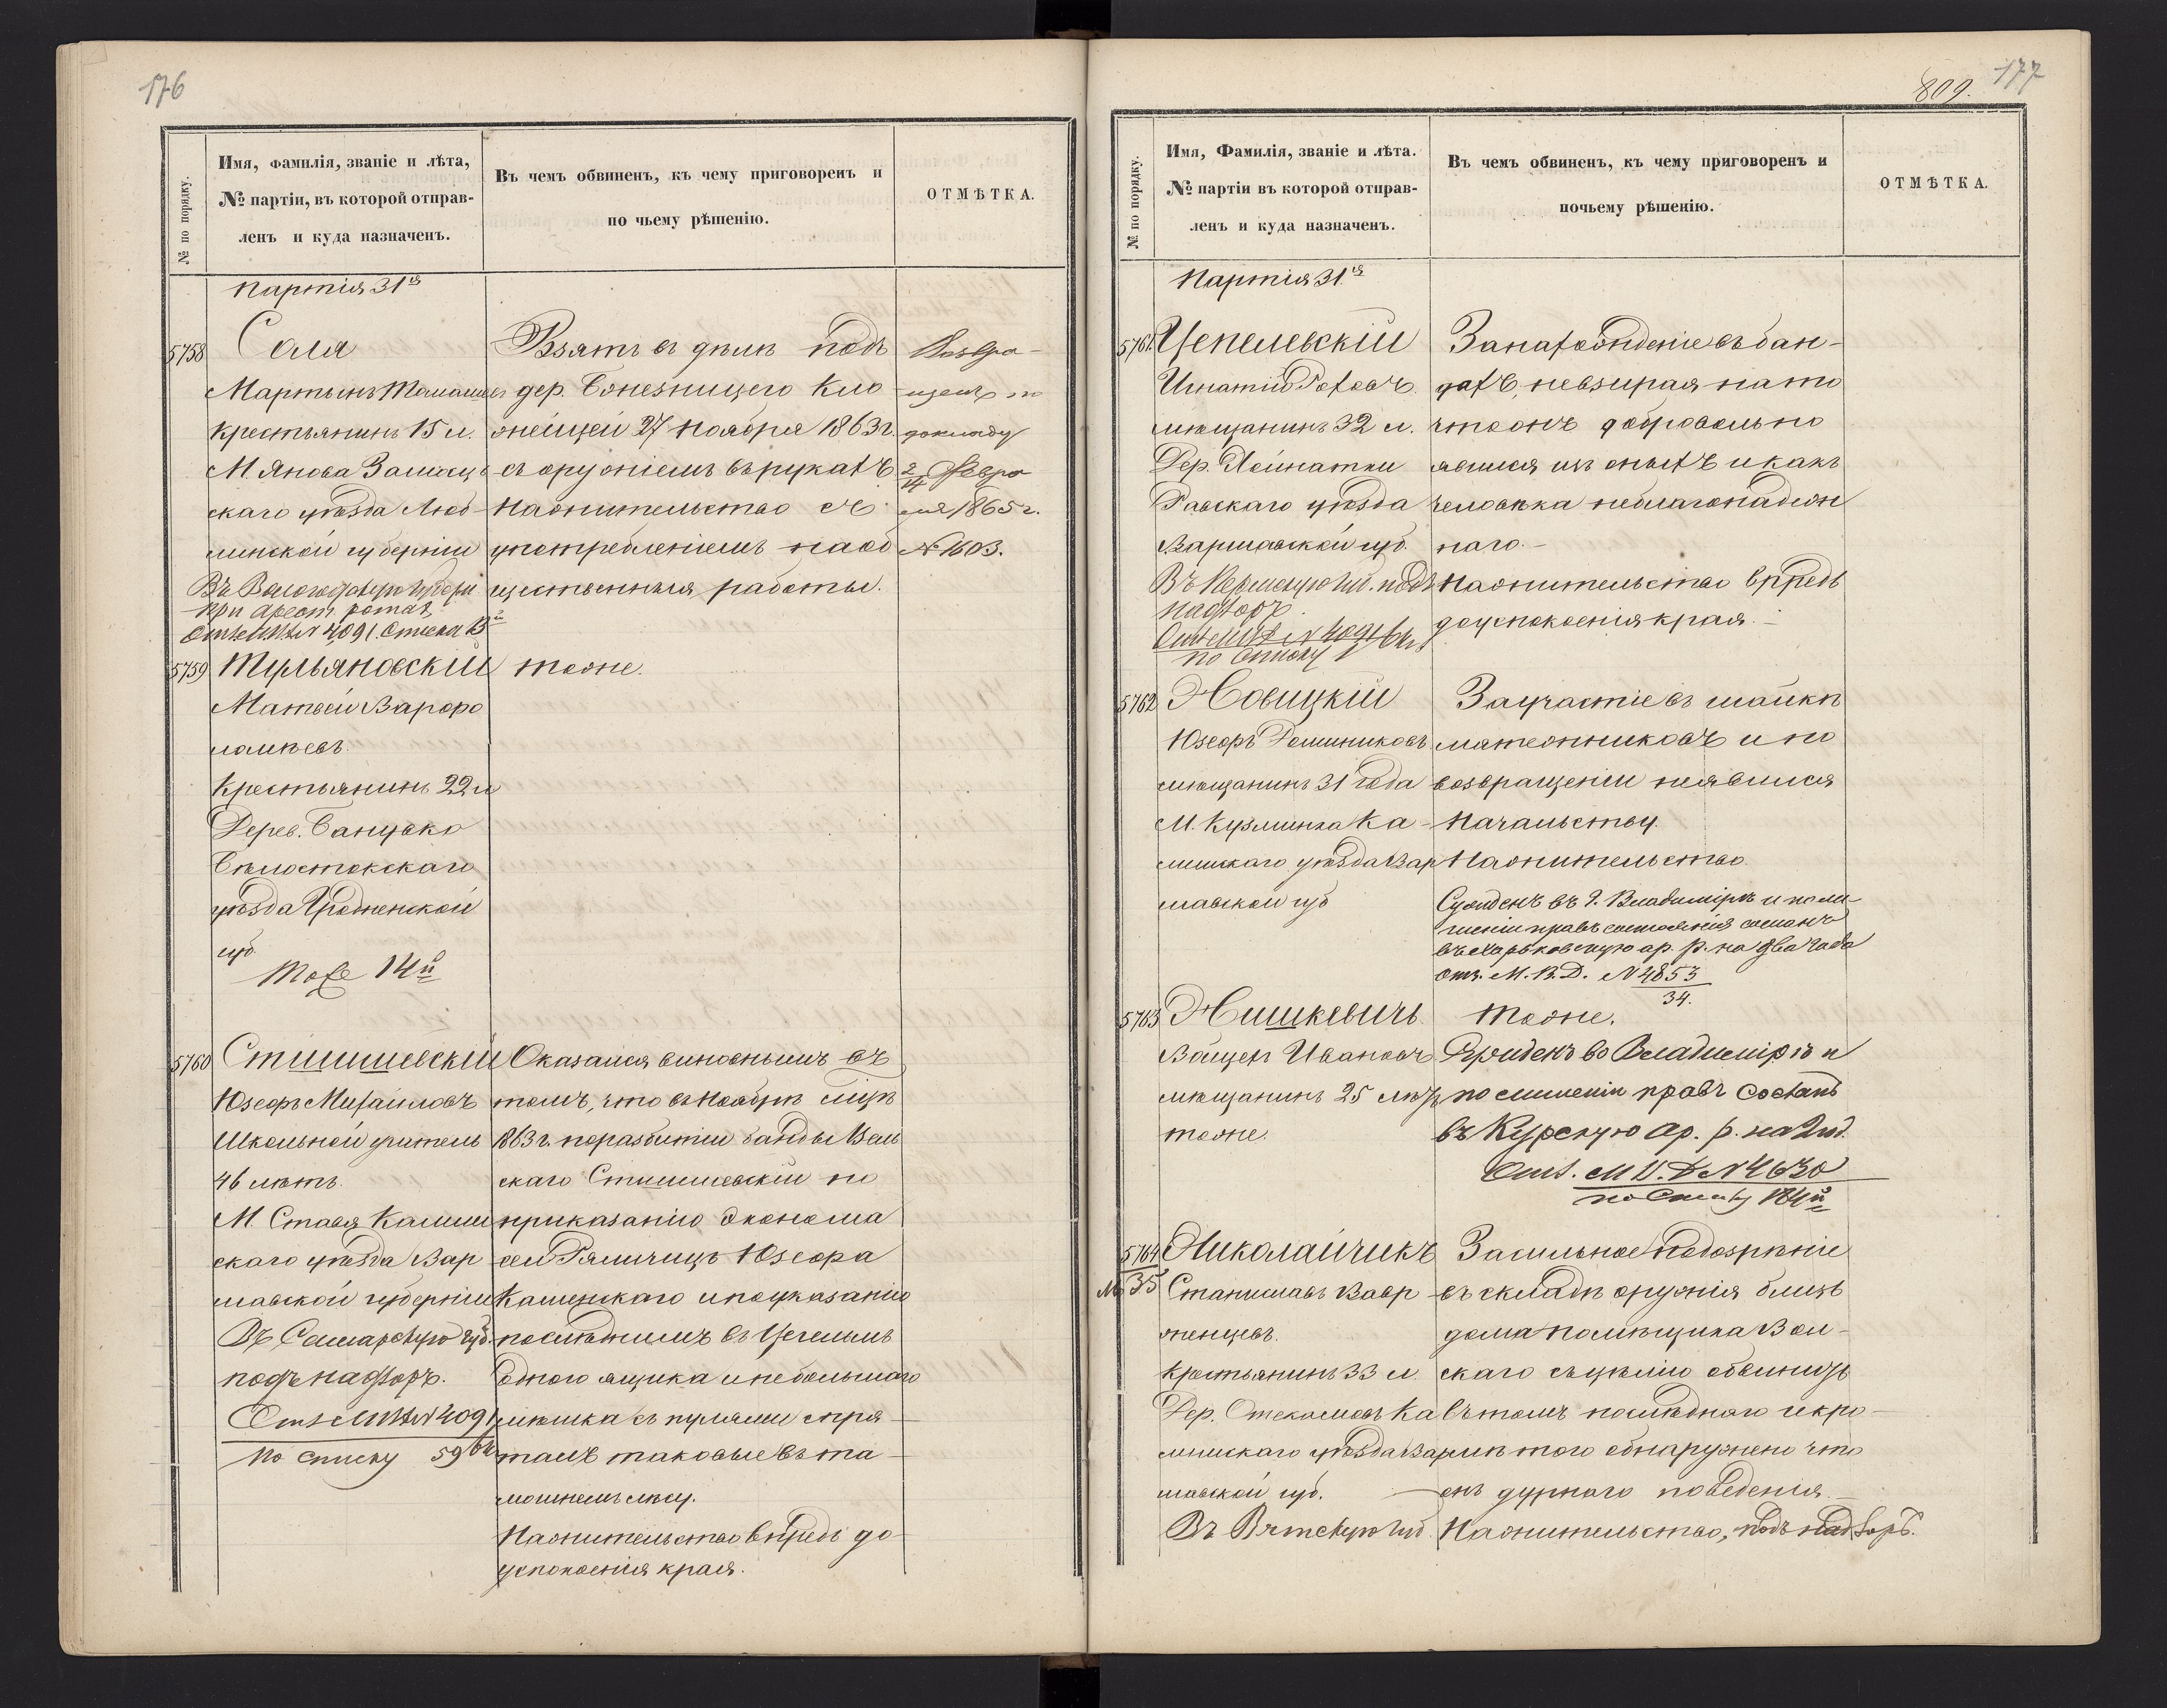 176
№ по порядку.
Имя, Фамилія, званіе и лѣта,
№ партіи, въ которой отправ-
ленъ и куда назначенъ.
Въ чемъ обвиненъ, къ чему приговоренъ и
по чьему рѣшенію.
ОТМѢТКА.
Партія 31я
5758
Саля
Мартынъ
крестьянинъ 15 л.
М. Янова Замосц
скаго уѣзда Люб-
линской губерніи
Въ Вологодскую губерн
при арест. ротах
Отн. М.В.Д. № 4091. Списка 13й
Взятъ въ дѣлѣ подъ
дер.
27 ноября 1863 г.
съ оружіемъ въ рукахъ
На жительство съ
употребленіемъ на об
щественныя работы.
Возвра-
щенъ по
докладу
2/14 Февра
ля 1865 г.
№ 1603.
5759
Тульяновскій
Матвѣй Варфо
ломѣевъ
Крестьянинъ 22 л
Дерев.
Бѣлостокскаго
уѣзда Гродненской
губ.
Тоже 14й
тоже.
5760
Стшишевскій
Юзефъ Михайловъ
Школьной учитель
46 лѣтъ.
М. Ставя Калиш
скаго уѣзда Вар
шавской губерніи
Въ Самарскую губ.
подъ надзоръ.
Отн. М.В.Д. № 4091
по списку 59
Оказался виновнымъ въ
томъ, что въ Ноябрѣ мцѣ
1863 г. по разбитіи банды
скаго Стшишевскій по
приказанію эконома
Юзефа
и по указанію
послѣднимъ въ
одного ящика и небольшаго
мѣшка съ пулями спря-
талъ таковые въ та-
мошнемъ лѣсу.
На жительство впредь до
успокоенія края.
177
809.
№ по порядку.
Имя, Фамилія, званіе и лѣта.
№ партіи въ которой отправ-
ленъ и куда назначенъ.
Въ чемъ обвиненъ, къ чему приговоренъ и
почьему рѣшенію.
ОТМѢТКА.
Партія 31я
5761
Цепелевскій
Игнатій
мѣщанинъ 32 л.
Дер.
Равскаго уѣзда
Варшавской губ.
Въ Пермскую губ. подъ
надзоръ.
Отн. М.В.Д. № 4091
по списку
За нахожденіе въ бан-
дахъ, невзирая на то
что онъ добровольно
явился изъ оныхъ и какъ
человѣка неблагонадеж
наго.-
На жительство впредь
до успокоенія края.-
5762
Новицкій
Юзефъ Доминиковъ
мѣщанинъ 31 года
М. Кузминка Ка-
лишскаго уѣзда Вар
шавской губ
За участіе въ шайкѣ
мятежниковъ и по
возвращеніи неявился
Начальству.
На жительство.
Сужденъ въ г. Владимірѣ и по ли-
шеніи правъ состоянія сосланъ
въ Харьковскую ар. р. на два года
Отн. М.В.Д. № 4853
34.
5763
Нишкевичъ
Войцехъ Ивановъ
мѣщанинъ 25 лѣтъ
тоже.
тоже.
Сужденъ во Владимірѣ и
по лишеніи правъ сосланъ
въ Курскую ар. р. на 2 год.
Отн. М.В.Д. № 4630
по списку 184й
5764
№ 35
Николайчикъ
Станиславъ Вавр
женцевъ.
Крестьянинъ 33 л.
Дер. Ка
лишскаго уѣзда Вар
шавской губ.
Въ Вятскую губ.
За сильное подозрѣніе
въ складѣ оружія близь
дома помѣщика Вол-
скаго съ цѣлію обвинить
въ томъ послѣдняго и кро-
мѣ того обнаружено что
онъ дурнаго поведенія.-
На жительство, подъ надзоръ.